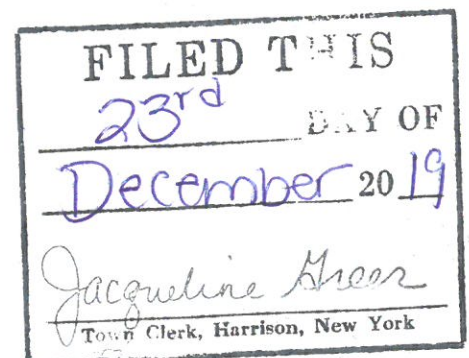 FILED THIS
23rd DAY OF
December 20 19
Jacqueline Greer
Town Clerk, Harrison, New York